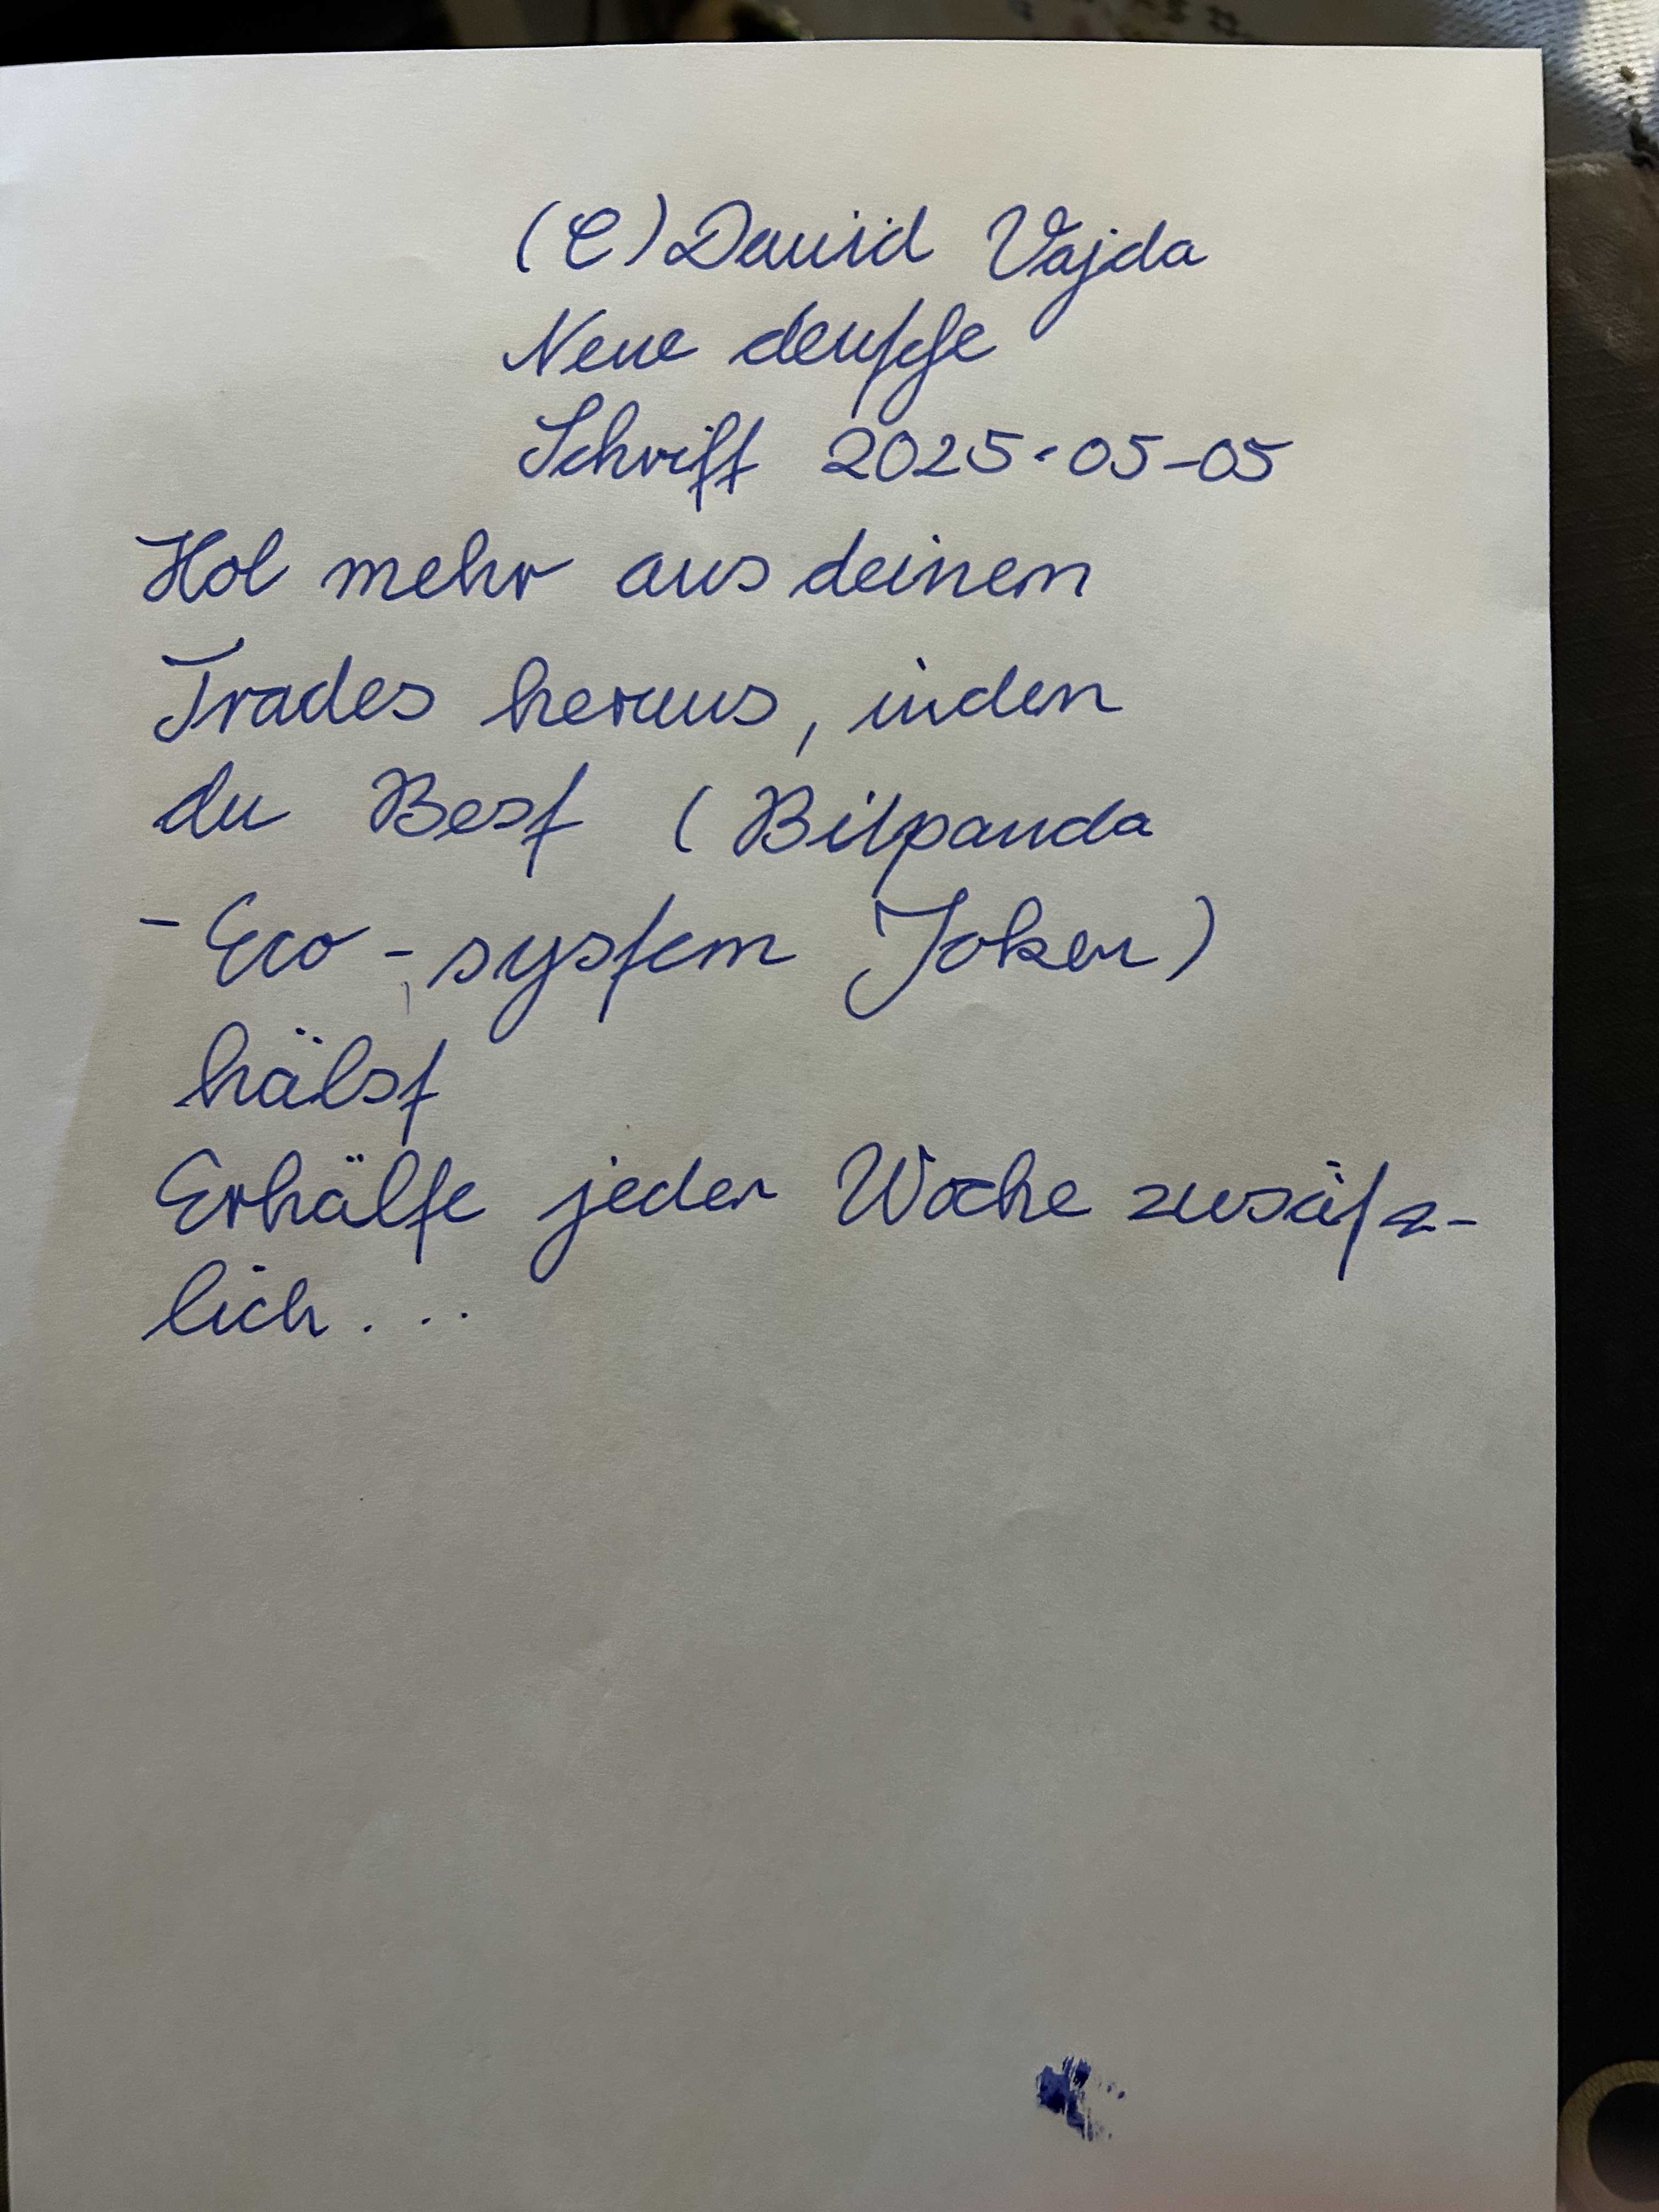 (C) David Vajda
Neue deutsche
Schrift 2025-05-05
Hol mehr aus deinem
Trades heraus, inden
du Best (Bitpanda
- Eco-system Joken)
hälst
Erhälte jeder Woche zusätz-
lich...